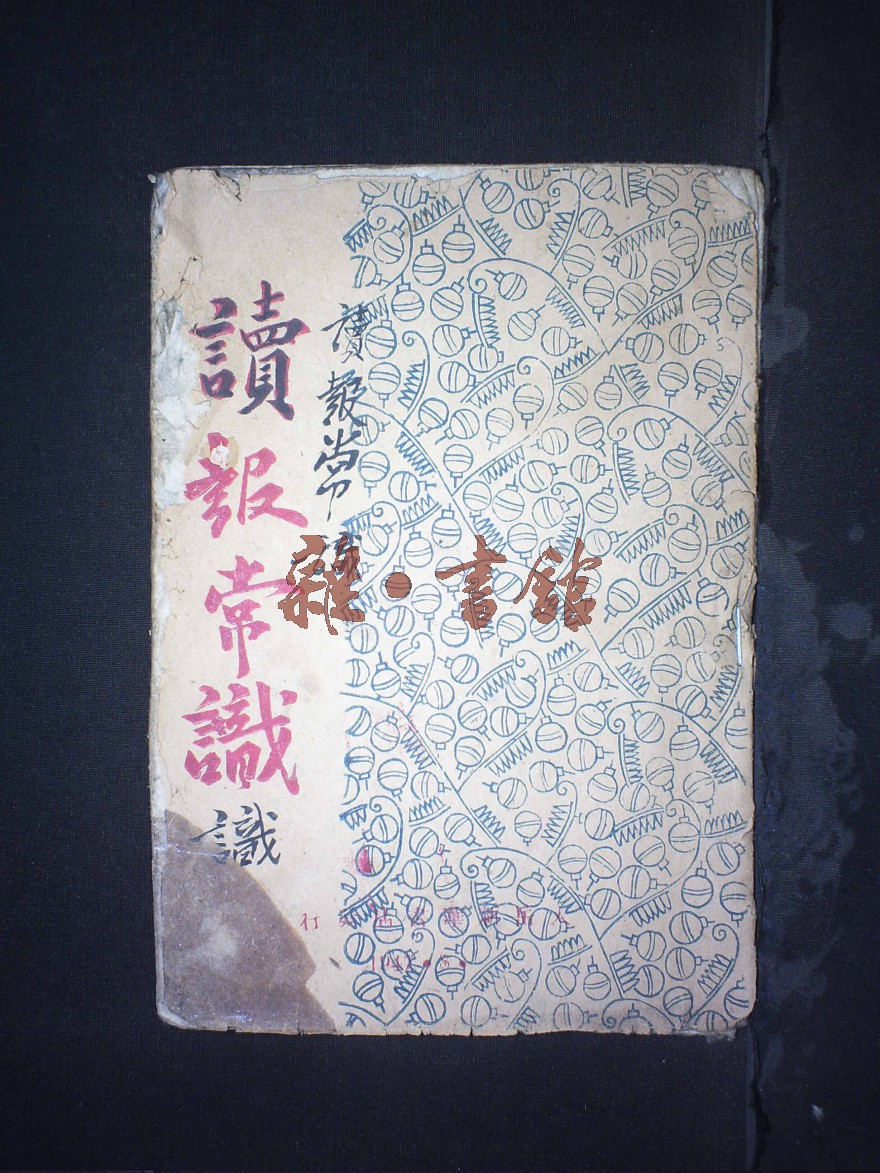 讀報常識
識
讀報常識
雜·書館